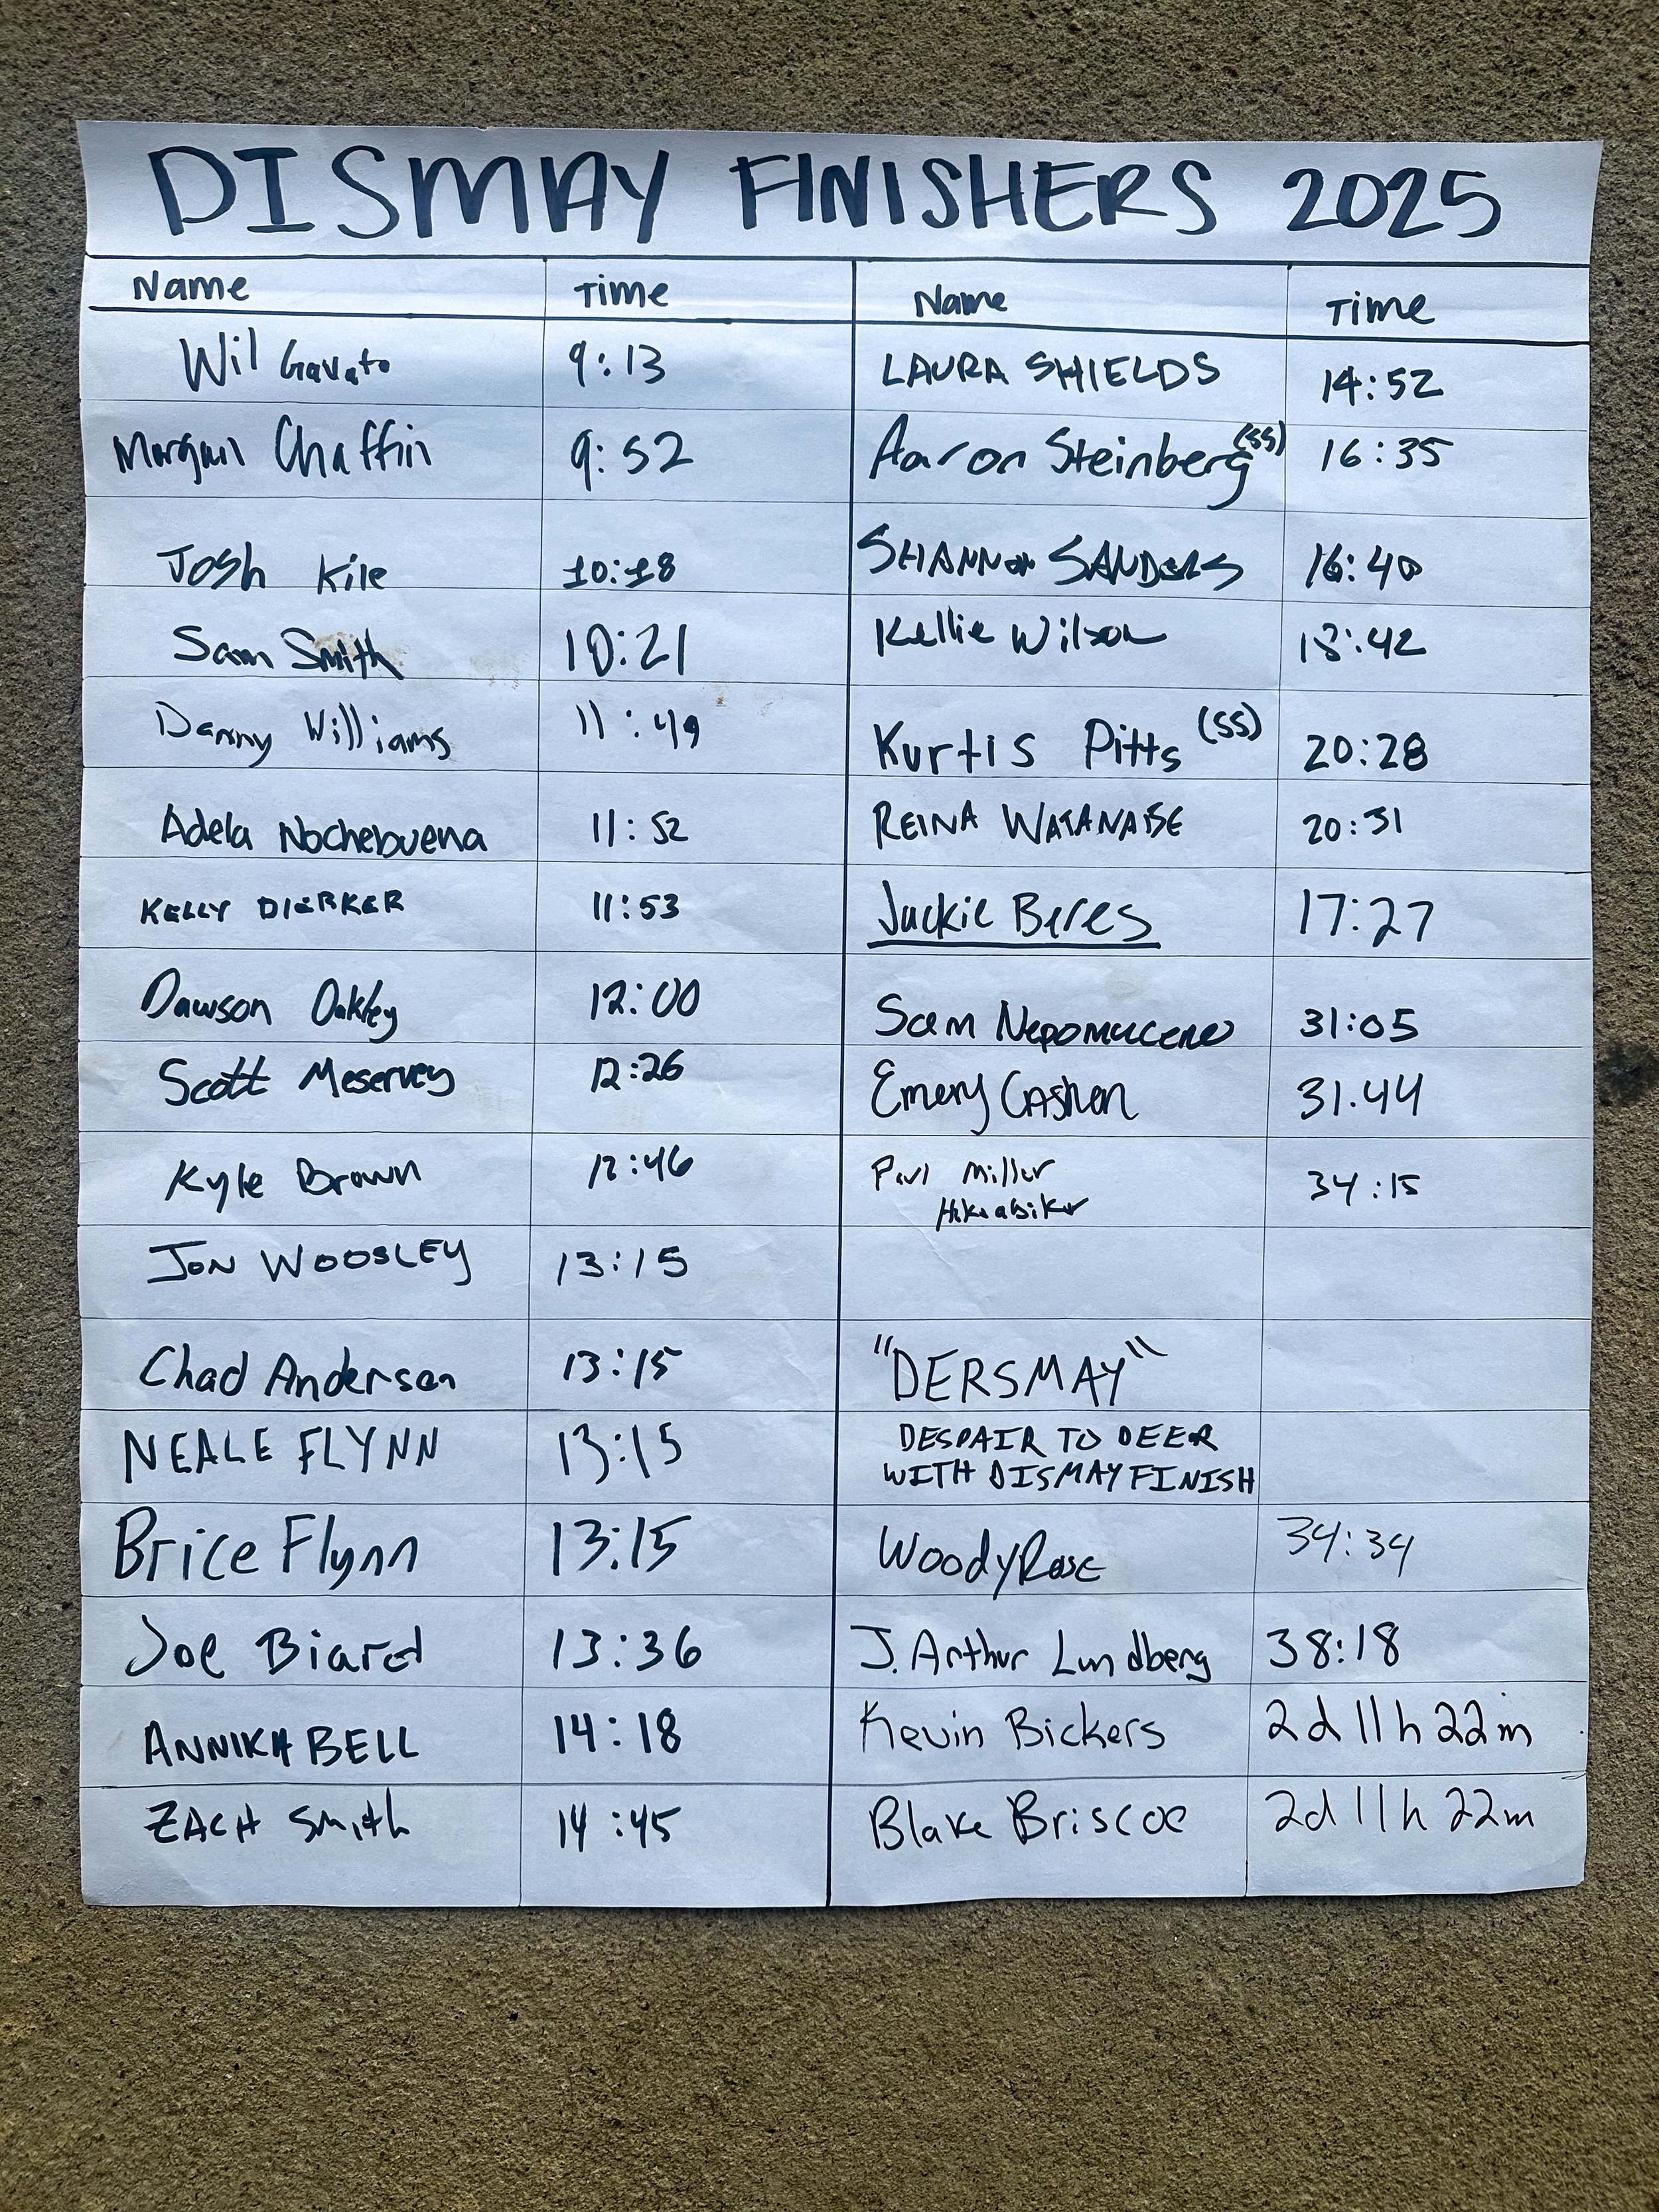 DISMAY FINISHERS 2025
Name Time Name Time
Wil Gavato 9:13
Morgan Chaffin 9:52
Josh Kile 10:18
Sam Smith 10:21
Danny Williams 11:49
Adela Nochebuena 11:52
KELLY DIERKER 11:53
Dawson Oakley 12:00
Scott Meservey 12:26
Kyle Brown 12:46
JON WOOSLEY 13:15
Chad Anderson 13:15
NEALE FLYNN 13:15
Brice Flynn 13:15
Joe Biard 13:36
ANNIKA BELL 14:18
ZACH Smith 14:45
LAURA SHIELDS 14:52
Aaron Steinberg (SS) 16:35
SHANNON SANDERS 16:40
Kellie Wilson 18:42
Kurtis Pitts (SS) 20:28
REINA WATANABE 20:31
Jackie Beres 17:27
Sam Nepomuceno 31:05
Emery Cashen 31:44
Paul Miller 34:15
"DERSMAY"
DESPAIR TO DEER
WITH DISMAY FINISH
Woody Rose 34:34
J. Arthur Lundberg 38:18
Kevin Bickers 2d 11h 22m
Blake Briscoe 2d 11h 22m